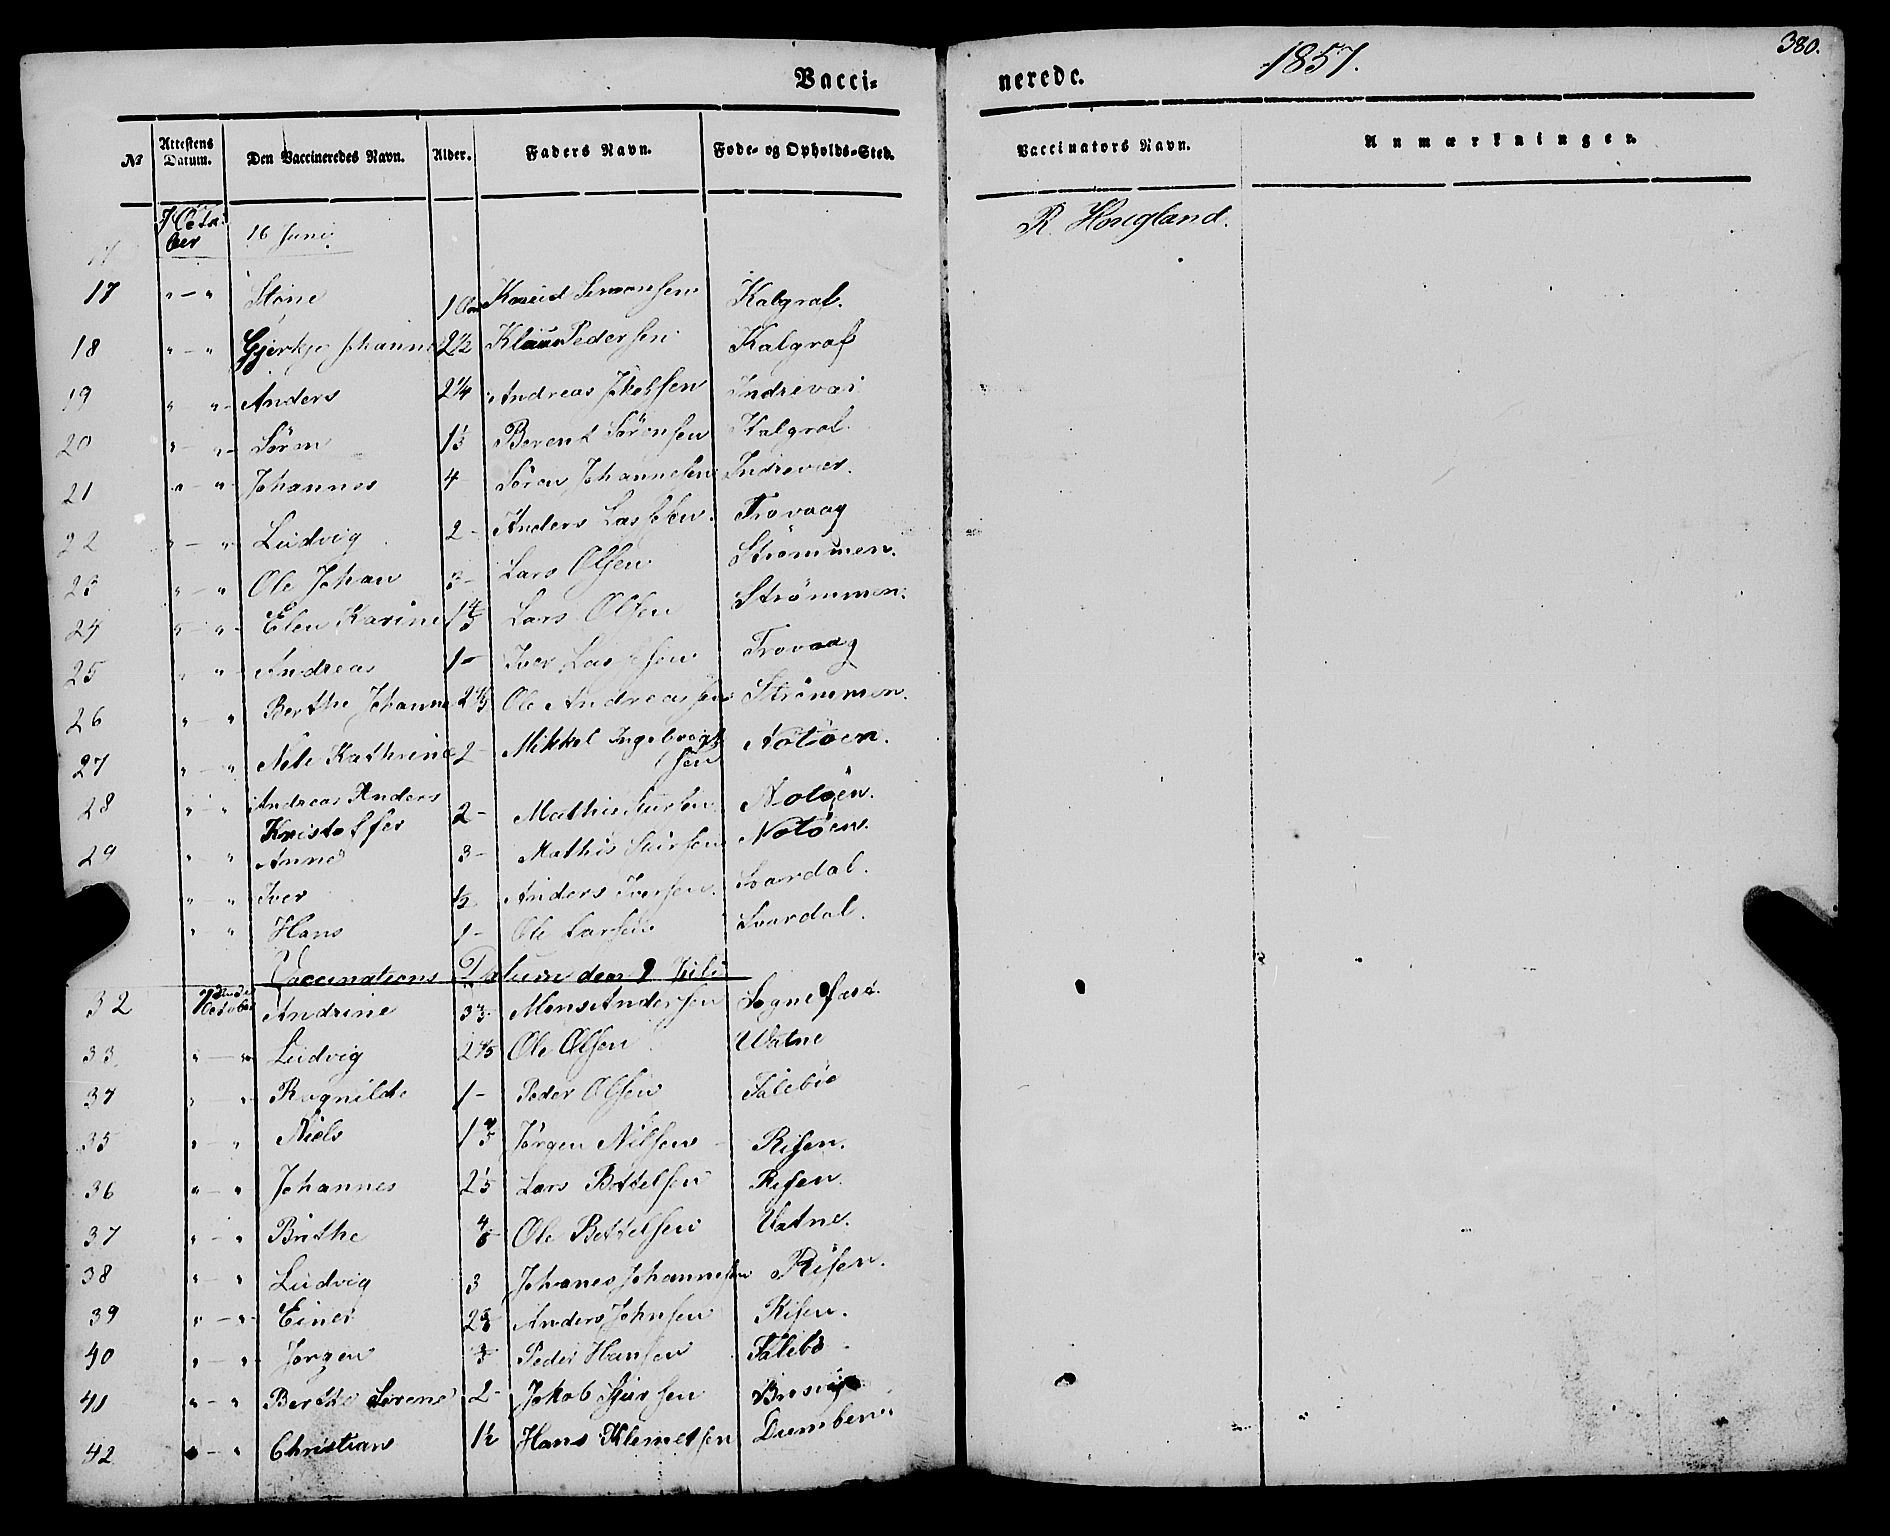 380.
1857.
Vacci- nerede.
No Attestens Datum. Den Vaccineredes Navn. Alder. Faders Navn. Føde- og Opholds-Sted. Vaccinators Navn. Anmærkninger.
7 Octo-
ber 16 Juni R. Hougland.
17 " - " Knud Simonsen Kalgraf.
18 " - " Johanne 2 1/2 Pedersen Kalgraf
19 " " Anders 2 1/4 Andreas
20 " " Søren 1 1/3 Berent Sørensen Kalgraf.
21 " - " Johannes 4 Søren Johannesen Indrevær.
22 " - " Ludvig 2 - Anders Lassesen. Trovaag
23 " - " Ole Johan 3 - Lars Olsen Strømmen.
24 " - " Elen Karine 1 4/5 Lars Olsen Strømmen.
25 " " Andreas 1 - Iver Lassesen Trovaag
26 " - " Berthe Johanne Ole Andreassen Strømmen.
27 " - " Kathrine 2 - Mikkel Ingebrigt
sen Notøen.
28 " - " Andreas Anders
Kristoffer 2 - Notøen.
29 " " Anne 3 - Mathis Notøen.
" - " Iver 1/2 Anders Iversen. Svardal.
" " Hans 1 - Ole Larsen Svardal.
Vaccinations Datum den 9 Juli
32 October Andrine Mons Andersen Sognefæst.
33. " - " Ludvig Ole Olsen Vatne
34 " " Ragnilde 1 - Peder Olsen Falebø
35 " - " Niels Jørgen Nilsen - Risen.
36 " - " Johannes 2 1/5 Lars Bottelsen Risen.
37 " - " Brithe Ole Bottelsen Vatne.
38 " - " Ludvig 3 Johanes Johannesen Risen.
39 " - " Einer Anders Johnsen Risen.
40 " - " Jørgen Peder Hansen Falebø
41 " - " Berthe Sørene 2 - Jakob
42 " - " Christian 1 1/2 Hans Klemetsen